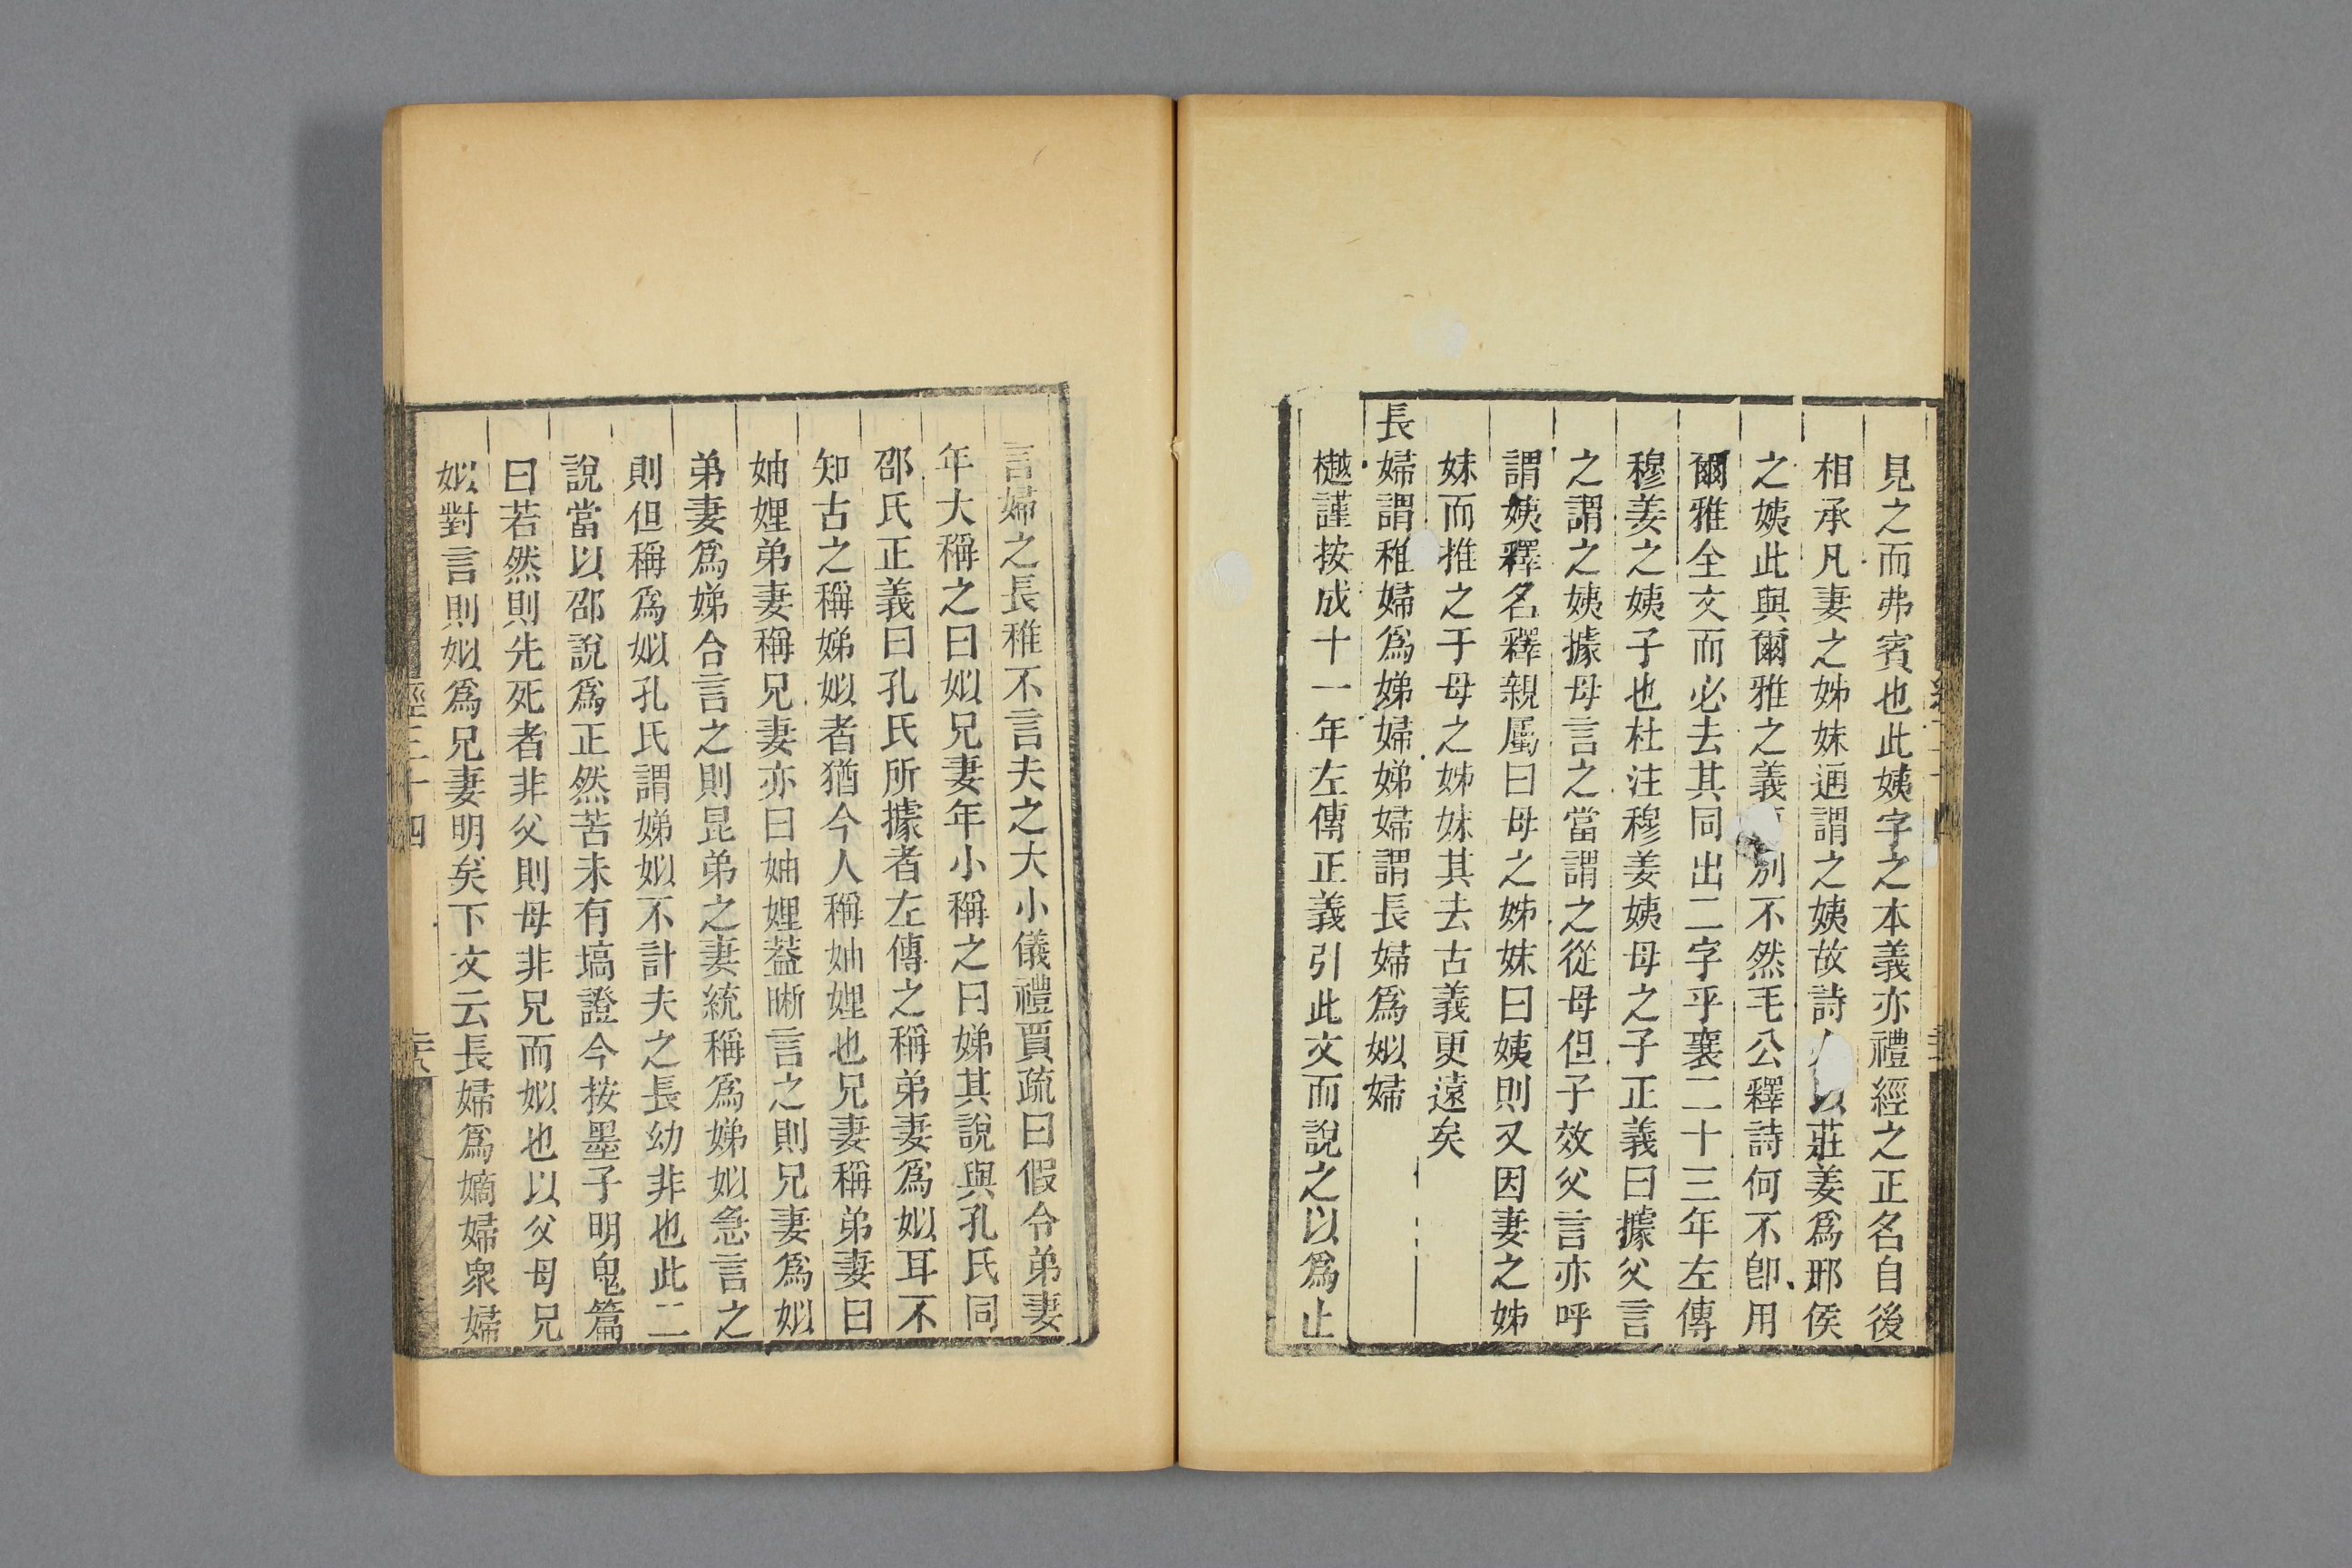 見之而弗賓也此姨字之本義亦禮經之正名自後
相承凡妻之姊妹通謂之姨故詩以莊姜爲邢侯
之姨此與爾雅之義別不然毛公釋詩何不卽用
爾雅全文而必去其同出二字乎襄二十三年左傳
穆姜之姨子也杜注穆姜姨母之子正義曰據父言
之謂之姨據母言之當謂之從母但子效父言亦呼
謂姨釋名釋親屬曰母之姊妹曰姨則又因妻之姊
妹而推之于母之姊妹其去古義更遠矣
長婦謂稚婦爲娣婦娣婦謂長婦爲姒婦
樾謹按成十一年左傳正義引此文而說之以爲止
言婦之長稚不言夫之大小儀禮賈疏曰假令弟妻
年大稱之曰姒兄妻年小稱之曰娣其說與孔氏同
邵氏正義曰孔氏所據者左傳之稱弟妻爲姒耳不
知古之稱娣姒者猶今人稱妯娌也兄妻稱弟妻曰
妯娌弟妻稱兄妻亦曰妯娌葢晰言之則兄妻爲姒
弟妻爲娣合言之則昆弟之妻統稱爲娣姒急言之
則但稱爲姒孔氏謂娣姒不計夫之長幼非也此二
說當以邵說爲正然苦未有塙證今按墨子明鬼篇
曰若然則先死者非父則母非兄而姒也以父母兄
姒對言則姒爲兄妻明矣下文云長婦爲嫡婦衆婦
經三十四